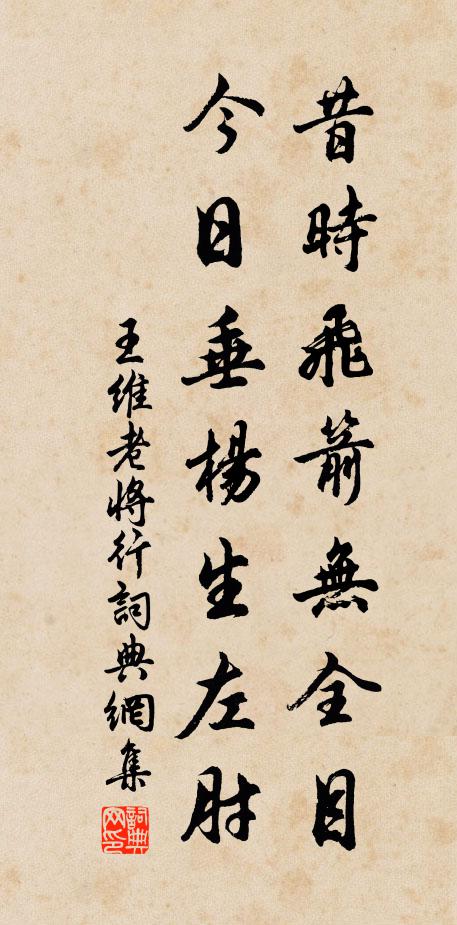 昔時飛箭無全目
今日垂楊生左肘
王維老將行詞典網集
詞典網印